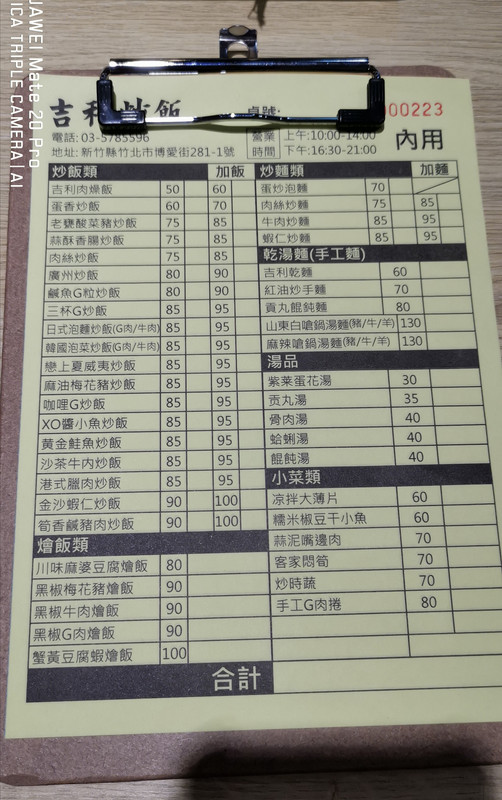 HUAWEI Mate 20 Pro
LEICA TRIPLE CAMERA | AI
吉利炒飯
桌號:
000223
電話: 03-5785596
地址: 新竹縣竹北市博愛街281-1號
營業時間
上午:10:00-14:00
下午:16:30-21:00
內用
炒飯類 加飯
吉利肉燥飯 50 60
蛋香炒飯 60 70
老甕酸菜豬炒飯 75 85
蒜酥香腸炒飯 75 85
肉絲炒飯 75 85
廣州炒飯 80 90
鹹魚G粒炒飯 80 90
三杯G炒飯 85 95
日式泡麵炒飯(G肉/牛肉) 85 95
韓國泡菜炒飯(G肉/牛肉) 85 95
戀上夏威夷炒飯 85 95
麻油梅花豬炒飯 85 95
咖哩G炒飯 85 95
XO醬小魚炒飯 85 95
黃金鮭魚炒飯 85 95
沙茶牛肉炒飯 85 95
港式臘肉炒飯 85 95
金沙蝦仁炒飯 90 100
筍香鹹豬肉炒飯 90 100
燴飯類
川味麻婆豆腐燴飯 80
黑椒梅花豬燴飯 90
黑椒牛肉燴飯 90
黑椒G肉燴飯 90
蟹黃豆腐蝦燴飯 100
炒麵類 加麵
蛋炒泡麵 70
肉絲炒麵 75 85
牛肉炒麵 85 95
蝦仁炒麵 85 95
乾湯麵(手工麵)
吉利乾麵 60
紅油炒手麵 70
貢丸餛飩麵 80
山東白嗆鍋湯麵(豬/牛/羊) 130
麻辣嗆鍋湯麵(豬/牛/羊) 130
湯品
紫菜蛋花湯 30
贡丸湯 35
骨肉湯 40
蛤蜊湯 40
餛飩湯 40
小菜類
凉拌大薄片 60
糯米椒豆干小魚 60
蒜泥嘴邊肉 70
客家悶筍 70
炒時蔬 70
手工G肉捲 80
合計